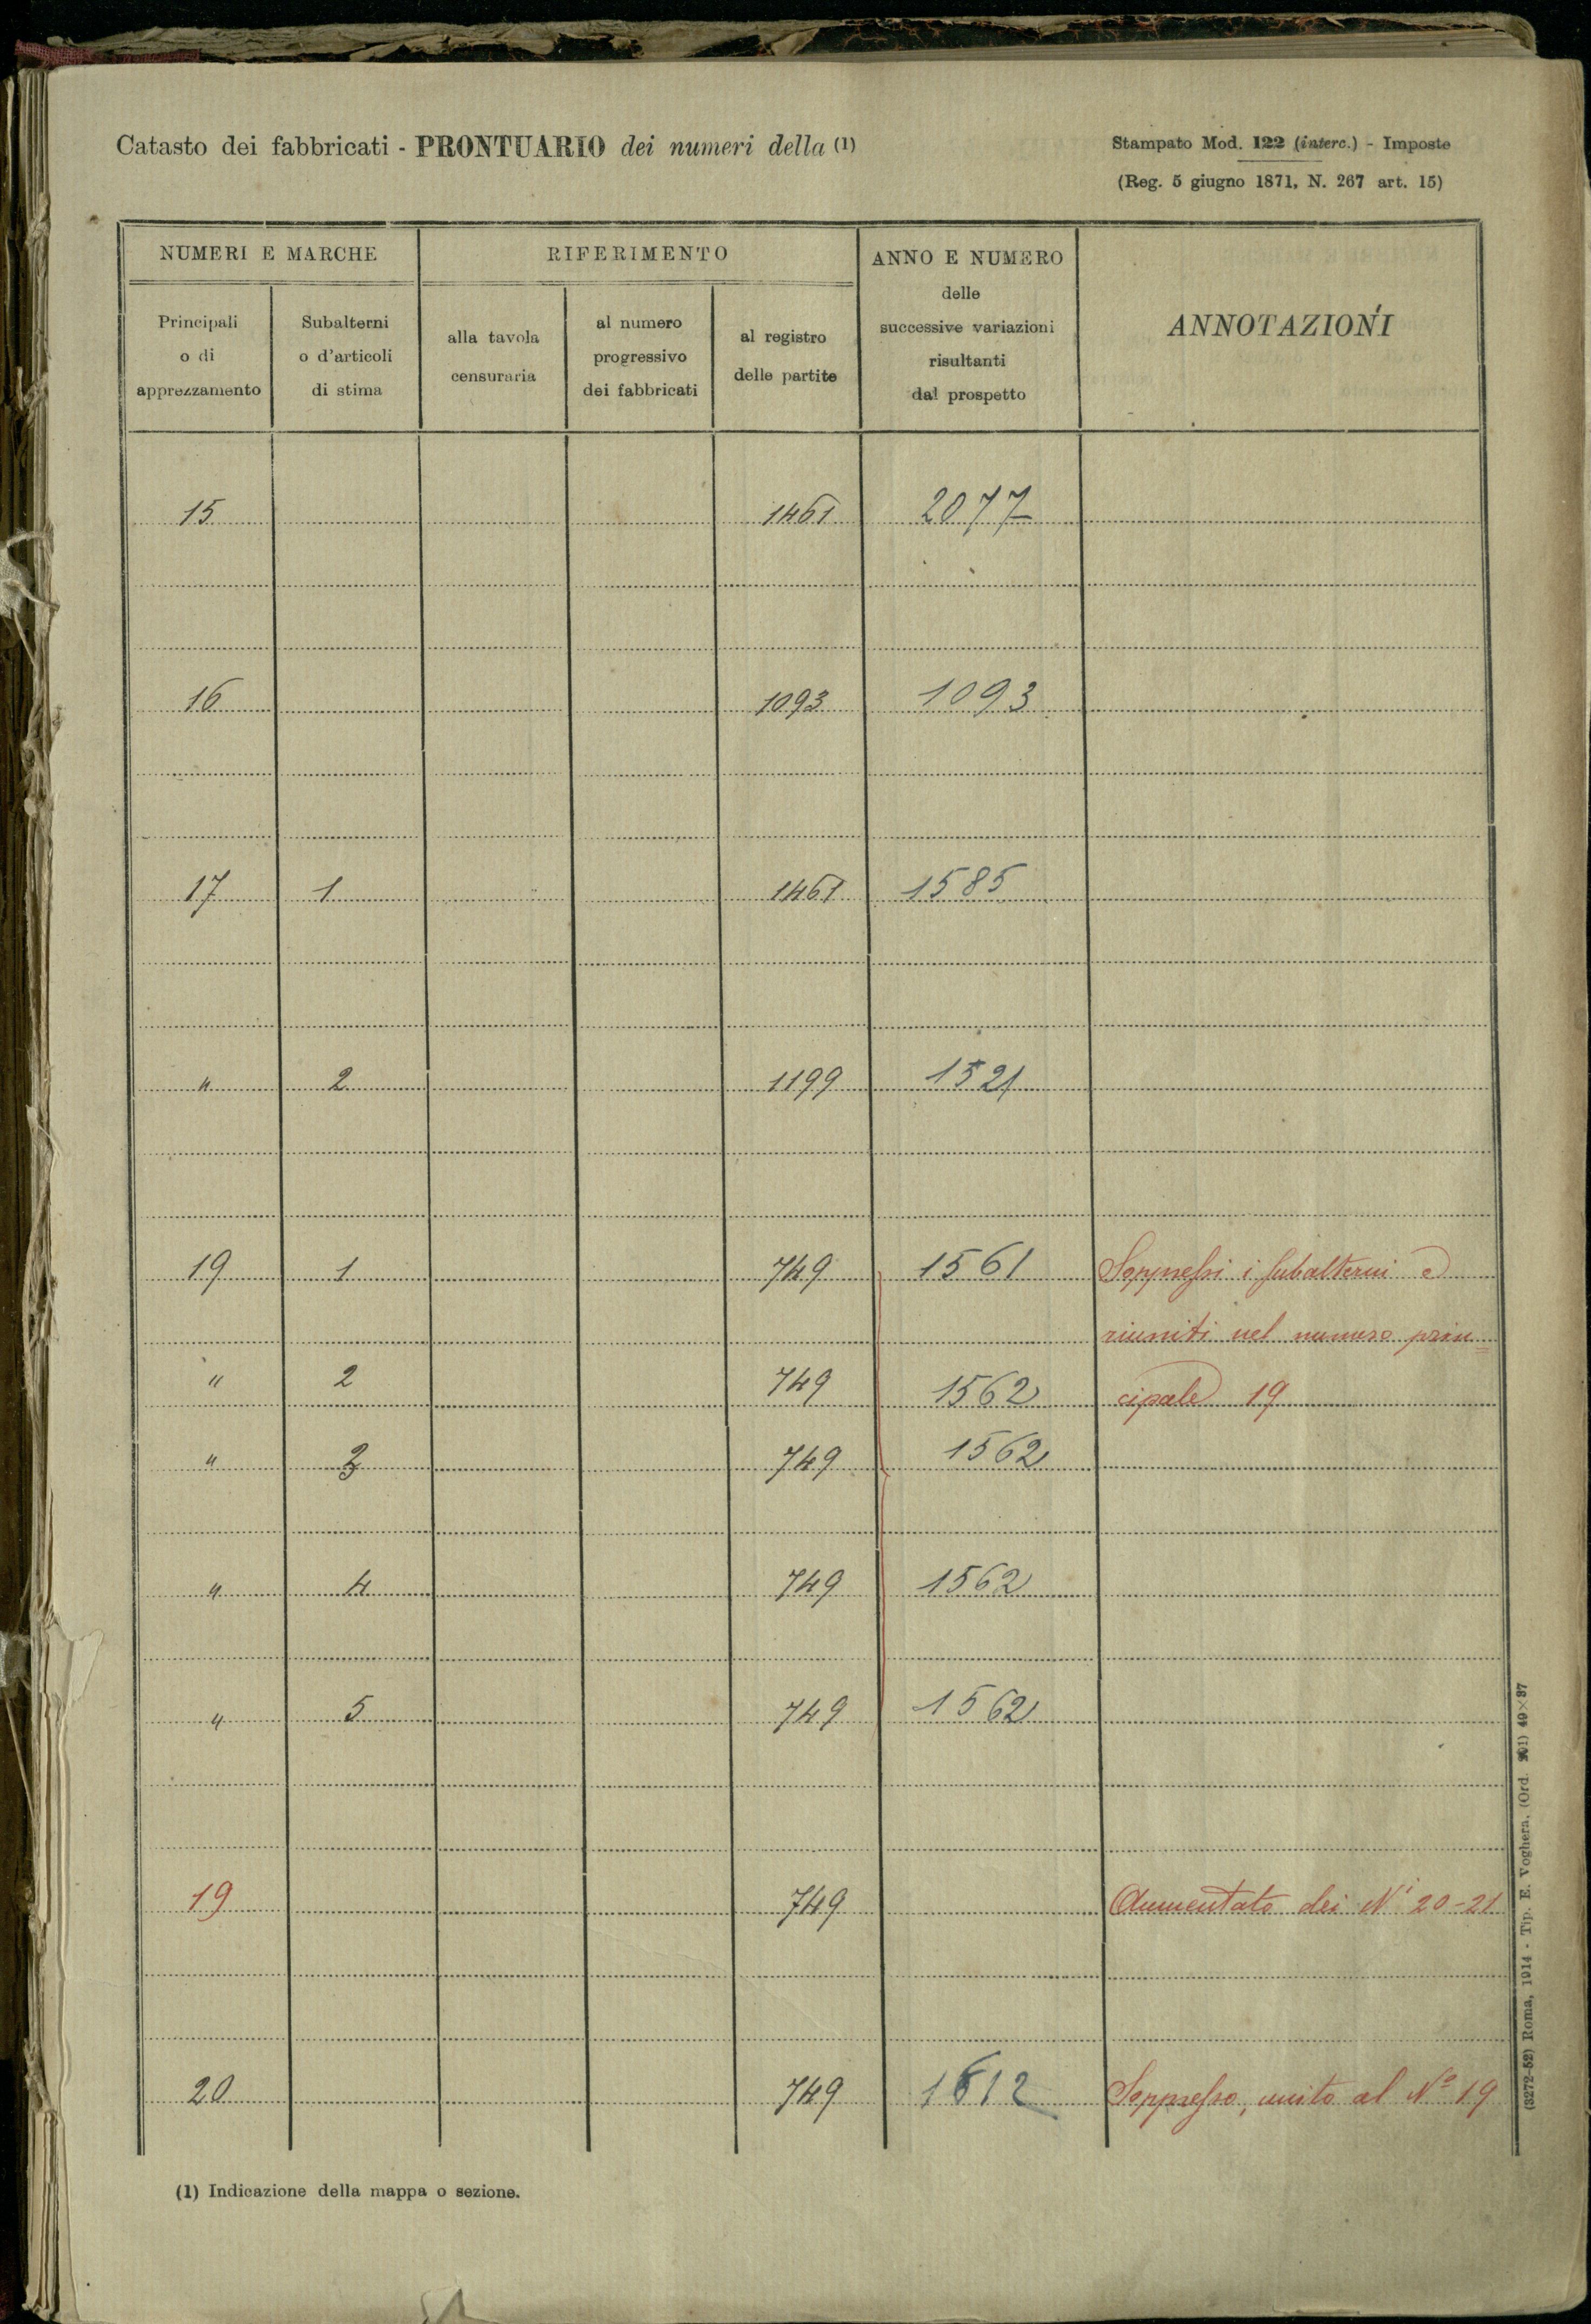 Catasto dei fabbricati - PRONTUARIO dei numeri della (1)
Stampato Mod. 122 (interc.) - Imposte
(Reg. 5 giugno 1871, N. 267 art. 15)
NUMERI E MARCHE
RIFERIMENTO
ANNO E NUMERO
delle
successive variazioni
risultanti
dal prospetto
ANNOTAZIONI
Principali
o di
apprezzamento
Subalterni
o d'articoli
di stima
alla tavola
censuraria
al numero
progressivo
dei fabbricati
al registro
delle partite
15 1461 2077
16 1093 1093
17 1 1461 1585
" 2 1199 1521
19 1 749 1561 Soppressi i subalterni e
riuniti nel numero prin=
" 2 749 1562 cipale 19
" 3 749 1562
" 4 749 1562
" 5 749 1562
19 749 Aumentato dei Ni 20-21
20 749 1612 Soppresso, unito al No 19
(1) Indicazione della mappa o sezione.
(3272-52) Roma, 1914 - Tip. E. Voghera, (Ord. 201) 49×37